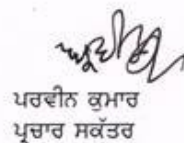 ਪਰਵੀਨ ਕੁਮਾਰ
ਪ੍ਰਚਾਰ ਸਕੱਤਰ